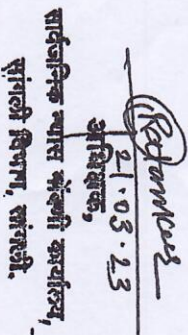 21.03.23
अधिक्षक,
सार्वजनिक न्यास नोंदणी कार्यालय,
सांगली विभाग, सांगली.